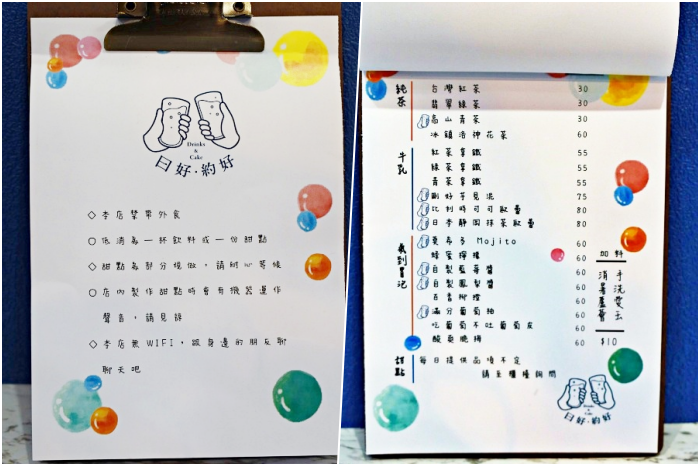 Drinks
&
Cake
日好·約好
◇本店禁帶外食
○低消為一杯飲料或一份甜點
◇甜點為部分現做，請耐心等候
○店內製作甜點時會有機器運作
聲音，請見諒
◇本店無WIFI，跟身邊的朋友聊
聊天吧
純茶
台灣紅茶 30
翡翠綠茶 30
高山青茶 30
冰鎮洛神花茶 60
牛乳
紅茶拿鐵 55
綠茶拿鐵 55
青茶拿鐵 55
剛好芋見泥 75
比利時可可歐蕾 80
日本靜岡抹茶歐蕾 80
氣到冒泡
莫希多 Mojito 60
蜂蜜檸檬 60
自製藍莓醬 60
自製鳳梨醬 60
百香柳橙 60
滿分葡萄柚 60
吃葡萄不吐葡萄皮 60
酸爽脆梅 60
加料
手洗愛玉
消暑蘆薈
$10
甜點
每日提供品項不定
請至櫃檯詢問
Drinks
&
Cake
日好·約好